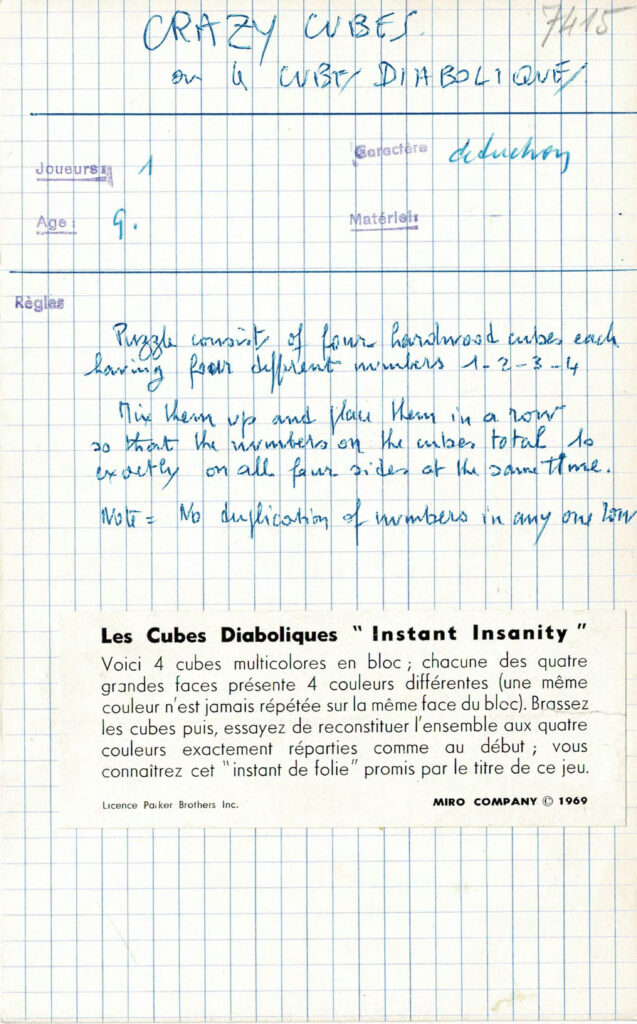 7415
CRAZY CUBES
ou le CUBE DIABOLIQUE
Joueurs: 1
Caractère deduction
Age: 9.
Matériel:
Règles
Puzzle consist of four hardwood cubes each
having four different numbers 1-2-3-4
Mix them up and place them in a row
so that the numbers on the cubes total 10
exactly on all four sides at the same time.
Note = No duplication of numbers in any one row
Les Cubes Diaboliques "Instant Insanity"
Voici 4 cubes multicolores en bloc ; chacune des quatre
grandes faces présente 4 couleurs différentes (une même
couleur n'est jamais répétée sur la même face du bloc). Brassez
les cubes puis, essayez de reconstituer l'ensemble aux quatre
couleurs exactement réparties comme au début ; vous
connaîtrez cet "instant de folie" promis par le titre de ce jeu.
Licence Parker Brothers Inc.
MIRO COMPANY © 1969